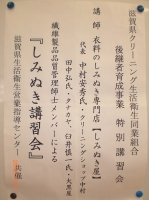 滋賀県クリーニング生活衛生同業組合
後継者育成事業 特別講習会
講師 衣料のしみぬき専門店【しみぬき屋】
代表 中村安秀氏・クリーニングショップ中村
田中弘氏・タナカヤ、臼井慎一氏・大黒屋
繊維製品品質管理師士メンバーによる
『しみぬき講習会』
滋賀県生活衛生営業指導センター 共催